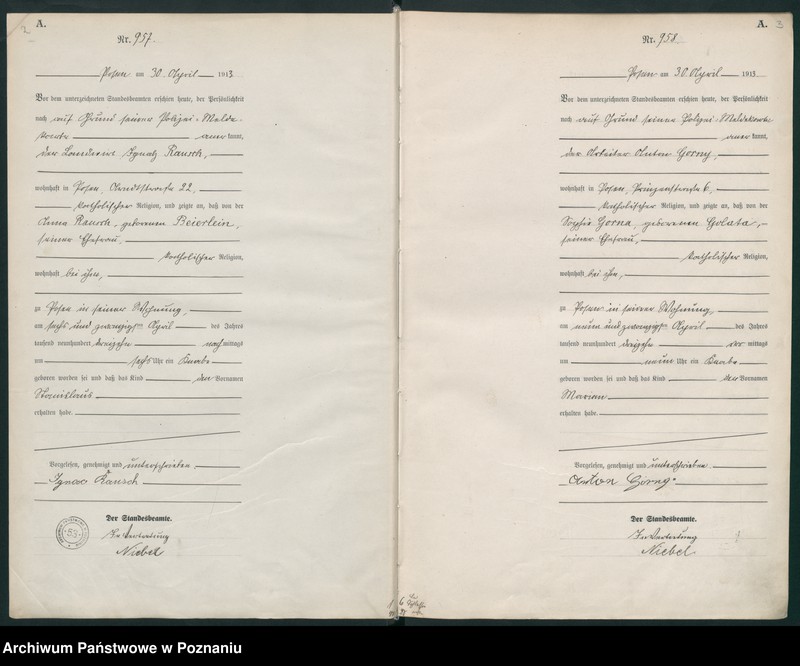 2
A.
Nr. 957.
Posen am 30. April 1913.
Vor dem unterzeichneten Standesbeamten erschien heute, der Persönlichkeit
nach auf Grund seiner Polizei-Melde-
karte anerkannt,
der Ignatz Rausch,
wohnhaft in Posen, 22,
katholischer Religion, und zeigte an, daß von der
Anna Rausch, geborenen Beierlein,
seiner Ehefrau,
katholischer Religion,
wohnhaft bei ihm,
zu Posen in seiner Wohnung,
am sechs und zwanzigsten April des Jahres
tausend neunhundert dreizehn nachmittags
um sechs Uhr ein Knabe
geboren worden sei und daß das Kind den Vornamen
Stanislaus
erhalten habe.
Vorgelesen, genehmigt und unterschrieben
Ignac Rausch
Der Standesbeamte.
In Vertretung
Niebel
A.
3
Nr. 958
Posen am 30. April 1913
Vor dem unterzeichneten Standesbeamten erschien heute, der Persönlichkeit
nach auf Grund seiner Polizei-Meldekarte
anerkannt,
der Arbeiter Anton Gorny,
wohnhaft in Posen, Prinzenstraße 6,
katholischer Religion, und zeigte an, daß von der
Sophie Gorna, geborenen Golata,
seiner Ehefrau,
katholischer Religion,
wohnhaft bei ihm,
zu Posen in seiner Wohnung,
am neun und zwanzigsten April des Jahres
tausend neunhundert dreizehn vormittags
um neun Uhr ein Knabe
geboren worden sei und daß das Kind den Vornamen
Marian
erhalten habe.
Vorgelesen, genehmigt und unterschrieben
Anton Gorny
Der Standesbeamte.
In Vertretung
Niebel
Archiwum Państwowe w Poznaniu